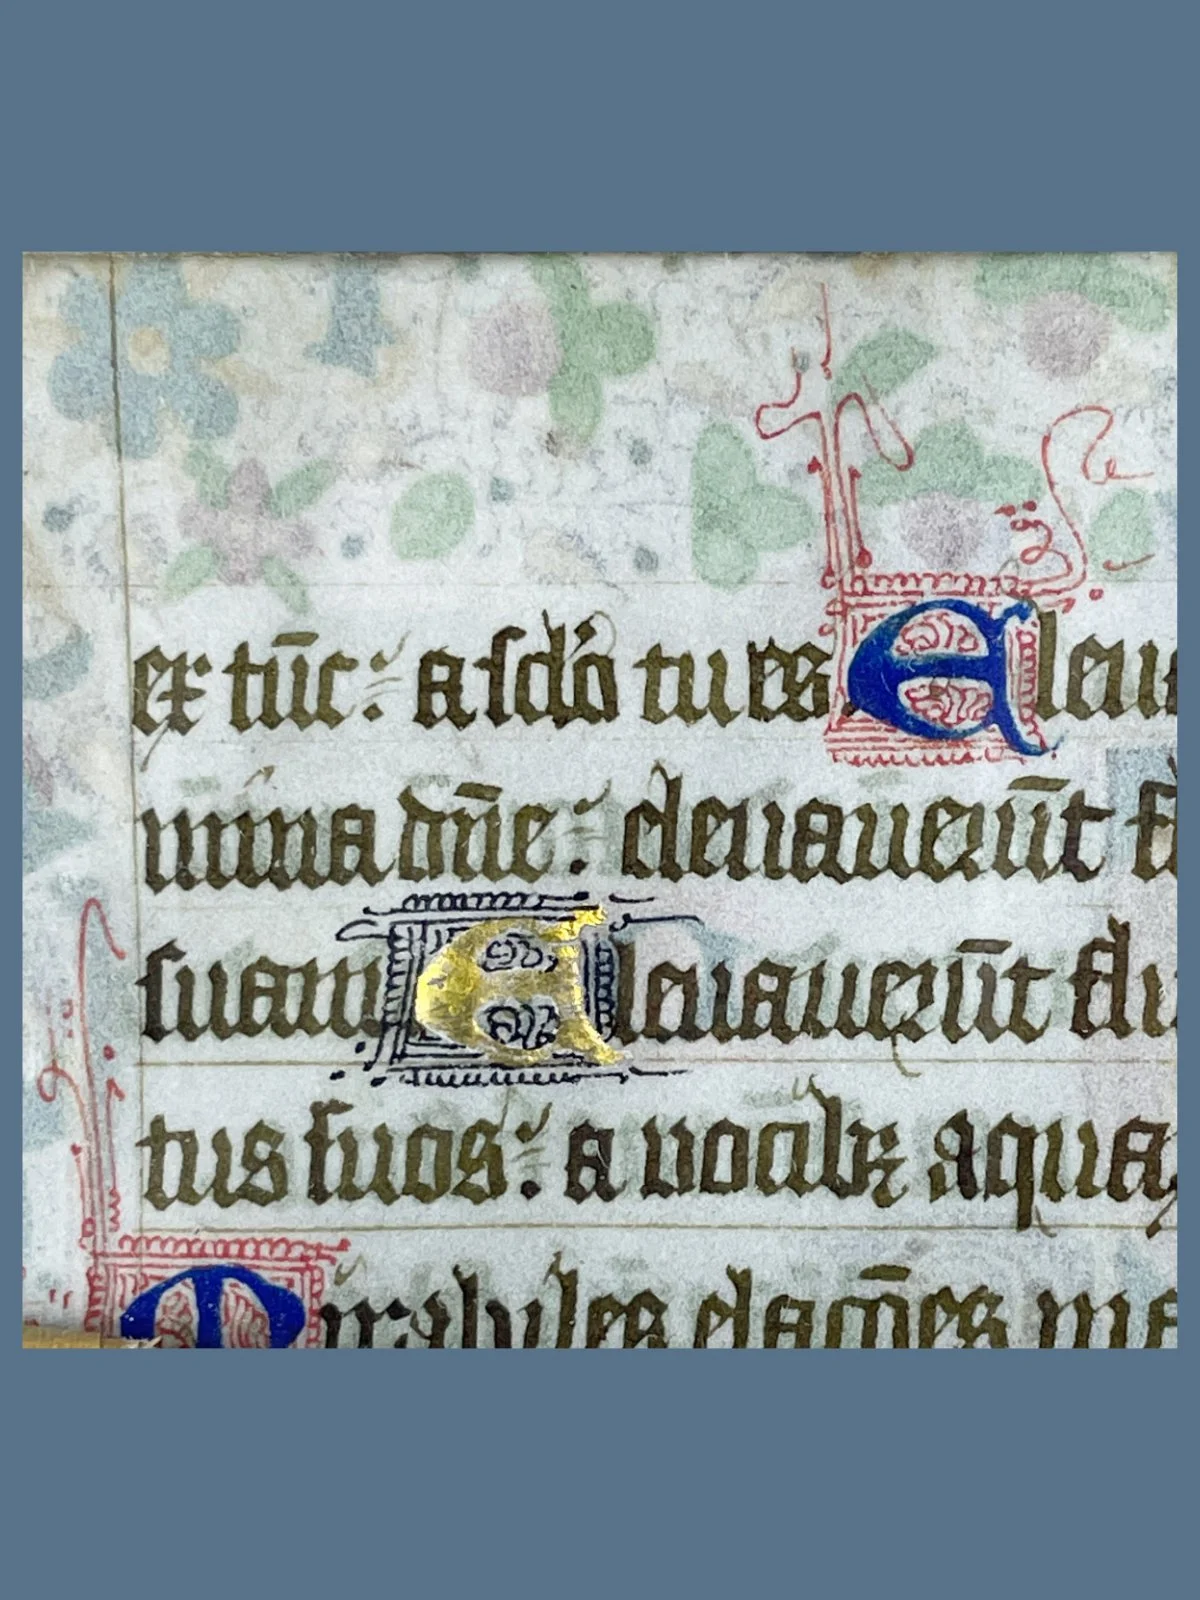 ex tūc: a sclo tu es Eleu
mina dñe: eleuauerūt fl
suam Eleuauerūt flu
tus suos: a uocibꝫ aqua
Mirabiles elacōes ma